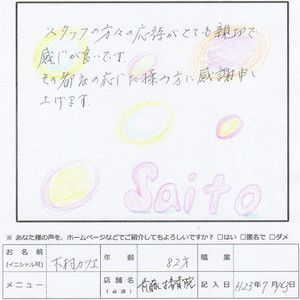 スタッフの方々の応待がとても親切で
感じが良いです。
その都度の応じた様の方に感謝申し
上げます。
Saito
※ あなた様の声を、ホームページなどでご紹介してもよろしいですか? □はい □匿名で □ダメ
お名前 (イニシャル可) 木村カツエ 年齢 82才 職業
メニュー 店舗名 (必須) 斉藤接骨院 記入日 H23年9月13日